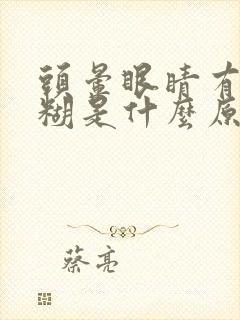 頭暈眼睛有
糊是什麼原
蔡亮